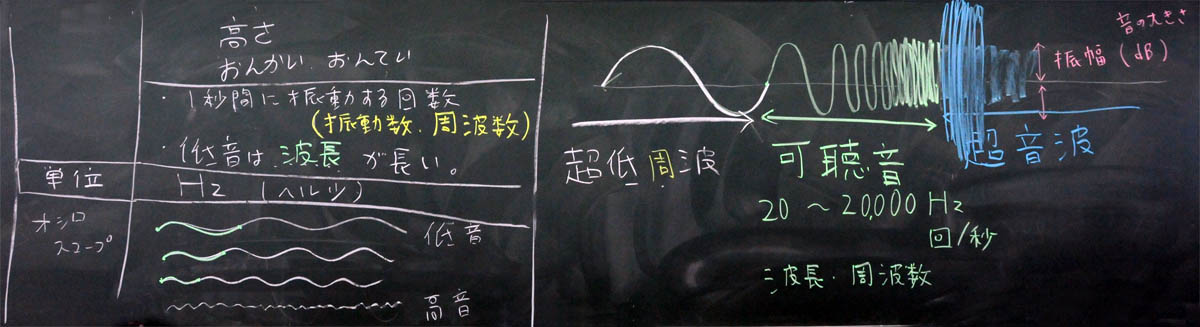 高さ
おんかい、おんてい
・1秒間に振動する回数
(振動数、周波数)
・低音は波長が長い。
単位
Hz (ヘルツ)
オシロ
スコープ
低音
高音
音の大きさ
振幅 (dB)
超低周波
可聴音
超音波
20 〜 20,000 Hz
回/秒
波長・周波数